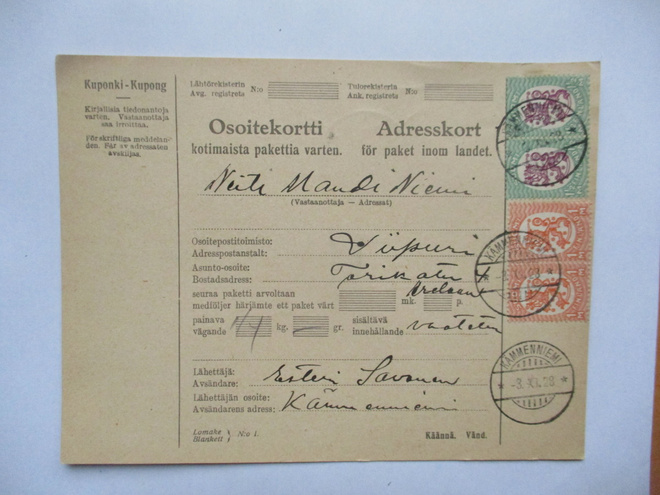 Kuponki - Kupong
Kirjallisia tiedonantoja
varten. Vastaanottaja
saa irroittaa.
För skriftliga meddelan-
den. Får av adressaten
avskiljas.
Lähtörekisterin
Avg. registrets
N:o
Tulorekisterin
Ank. registrets
N:o
Osoitekortti
kotimaista pakettia varten.
Adresskort
för paket inom landet.
Neiti Mandi Niemi
(Vastaanottaja — Adressat)
Osoitepostitoimisto:
Adresspostanstalt:
Viipuri
Asunto-osoite:
Bostadsadress:
Torikatu 4
seuraa paketti arvoltaan
medföljer härjämte ett paket värt
mk.
p.
painava
vägande
kg.
gr.
sisältävä
innehållande
vaatteita
Lähettäjä:
Avsändare:
Esteri Savonen
Lähettäjän osoite:
Avsändarens adress:
Kämmenniemi
Lomake
Blankett
N:o 1.
Käännä. Vänd.
KÄMMENNIEMI
-3.XI.28